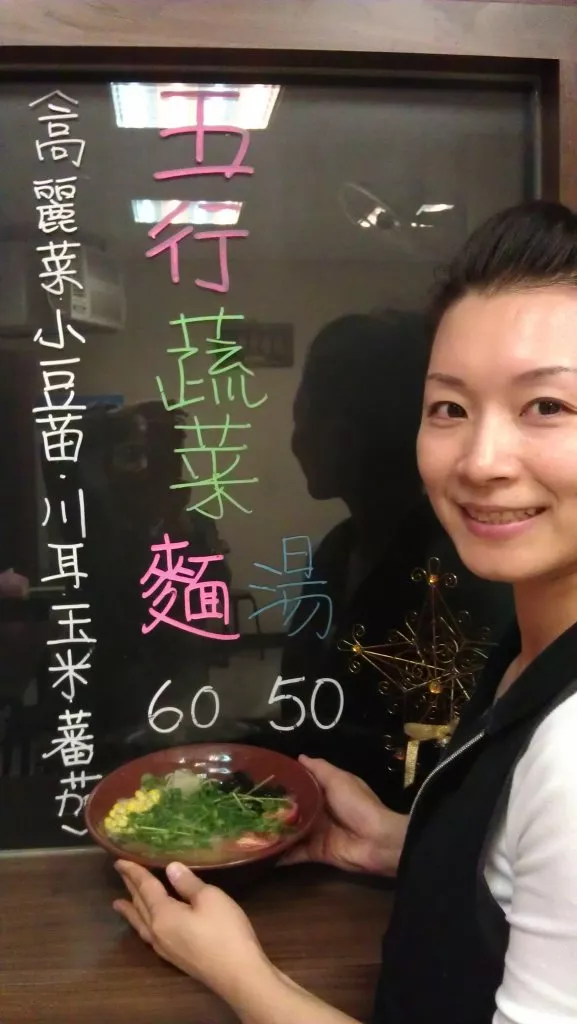 五行蔬菜
麵 湯
60 50
(高麗菜·小豆苗·川耳·玉米蕃茄)